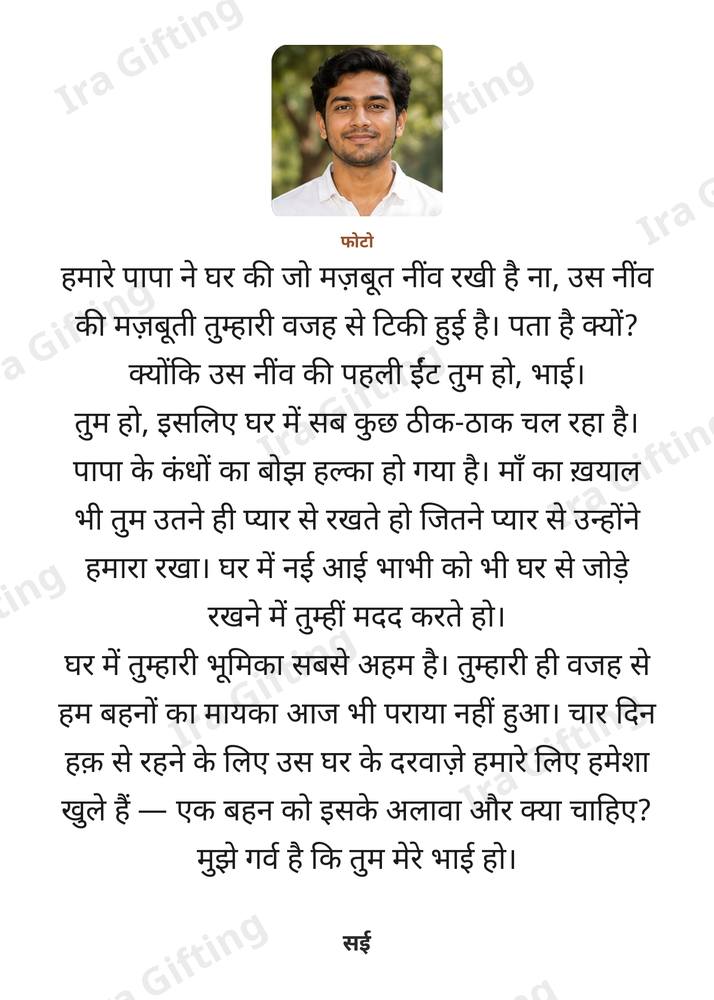 Ira Gifting
फोटो
हमारे पापा ने घर की जो मज़बूत नींव रखी है ना, उस नींव
की मज़बूती तुम्हारी वजह से टिकी हुई है। पता है क्यों?
क्योंकि उस नींव की पहली ईंट तुम हो, भाई।
तुम हो, इसलिए घर में सब कुछ ठीक-ठाक चल रहा है।
पापा के कंधों का बोझ हल्का हो गया है। माँ का ख़याल
भी तुम उतने ही प्यार से रखते हो जितने प्यार से उन्होंने
हमारा रखा। घर में नई आई भाभी को भी घर से जोड़े
रखने में तुम्हीं मदद करते हो।
घर में तुम्हारी भूमिका सबसे अहम है। तुम्हारी ही वजह से
हम बहनों का मायका आज भी पराया नहीं हुआ। चार दिन
हक़ से रहने के लिए उस घर के दरवाज़े हमारे लिए हमेशा
खुले हैं — एक बहन को इसके अलावा और क्या चाहिए?
मुझे गर्व है कि तुम मेरे भाई हो।
सई